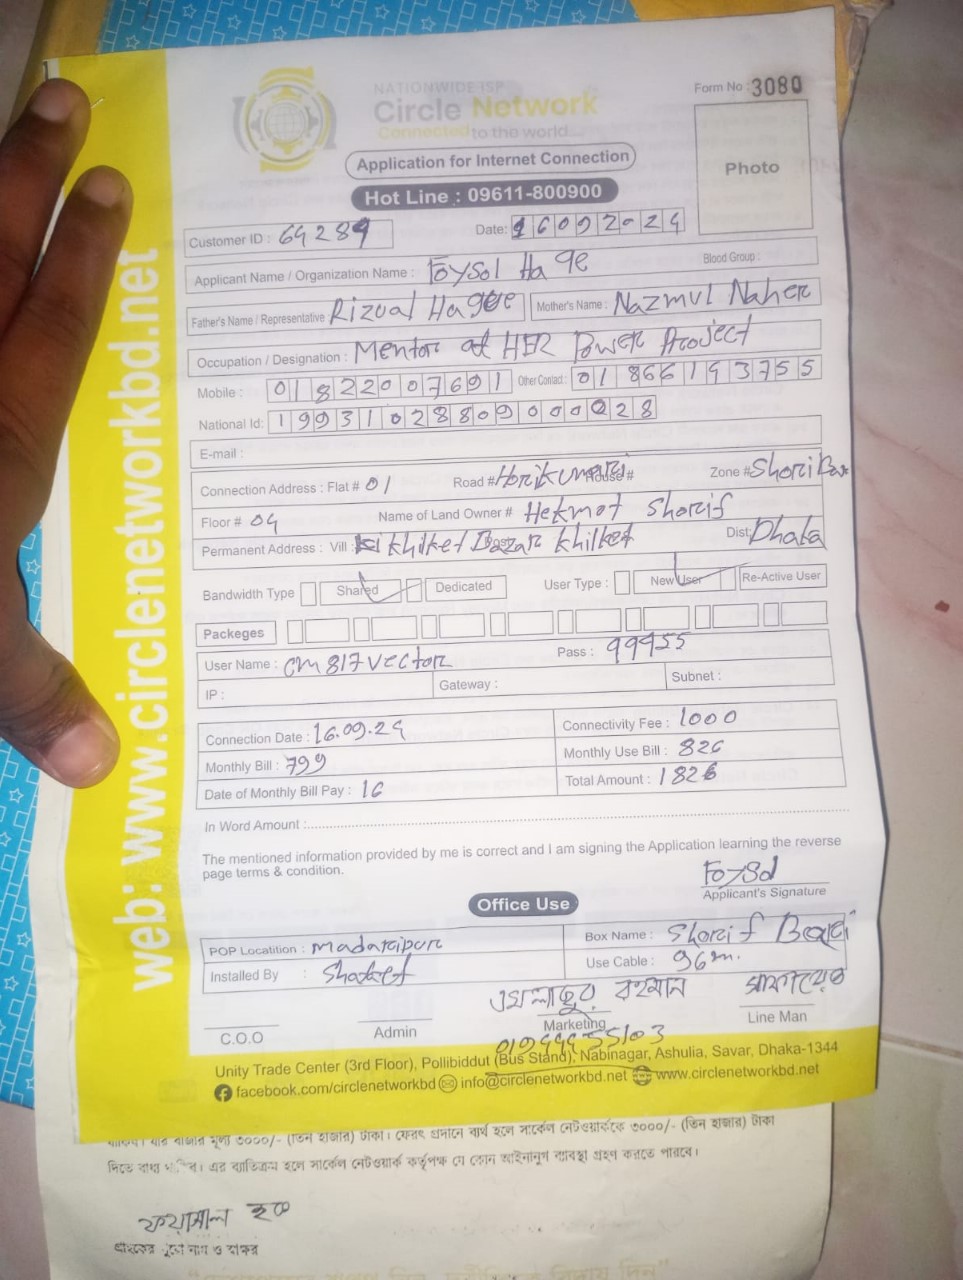 NATIONWIDE ISP
Circle Network
Connected to the world...
Form No : 3080
Photo
Application for Internet Connection
Hot Line : 09611-800900
Customer ID : 64289
Date: 16092024
Applicant Name / Organization Name : Foysol Haqe
Blood Group :
Father's Name / Representative Rizual Haque
Mother's Name : Nazmul Naher
Occupation / Designation : Mentor at HER Power Project
Mobile : 01822007691
Other Contact : 01866193755
National Id: 19931028809000028
E-mail :
Connection Address : Flat # 01 Road # Horikumari House # Zone #
Floor # 04 Name of Land Owner # Hekmot Shorif
Permanent Address : Vill : Khilket Bazar Khilket Dist: Dhaka
Bandwidth Type Shared Dedicated User Type : New User Re-Active User
Packeges
User Name : cm817vector Pass : 99955
IP : Gateway : Subnet :
Connection Date : 16.09.24 Connectivity Fee : 1000
Monthly Bill : 799 Monthly Use Bill : 826
Date of Monthly Bill Pay : 16 Total Amount : 1826
In Word Amount :
The mentioned information provided by me is correct and I am signing the Application learning the reverse
page terms & condition.
Foysol
Applicant's Signature
Office Use
POP Locatition : madaripur Box Name : Shorif Bari
Installed By : Use Cable : 96m.
রহমান
C.O.O Admin Marketing Line Man
Unity Trade Center (3rd Floor), Pollibiddut (Bus Stand), Nabinagar, Ashulia, Savar, Dhaka-1344
facebook.com/circlenetworkbd info@circlenetworkbd.net www.circlenetworkbd.net
web: www.circlenetworkbd.net
যার বাজার মূল্য ৩০০০/- (তিন হাজার) টাকা। ফেরৎ প্রদানে ব্যর্থ হলে সার্কেল নেটওয়ার্ককে ৩০০০/- (তিন হাজার) টাকা
দিতে বাধ্য থাকিব। এর ব্যতিক্রম হলে সার্কেল নেটওয়ার্ক কর্তৃপক্ষ যে কোন আইনানুগ ব্যবস্থা গ্রহণ করতে পারবে।
ফয়সাল হক
গ্রাহকের পুরো নাম ও স্বাক্ষর